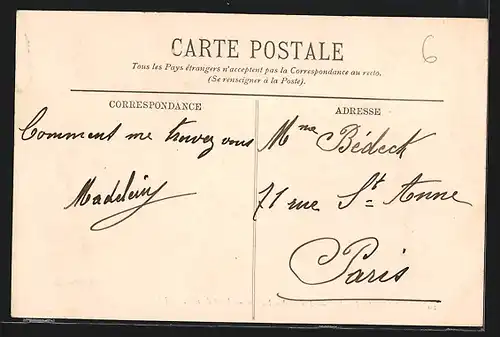 6
CARTE POSTALE
Tous les Pays étrangers n'acceptent pas la Correspondance au recto.
(Se renseigner à la Poste).
CORRESPONDANCE
Comment me trouvez vous
Madeleine
ADRESSE
Mme Bédeck
71 rue St= Anne
Paris